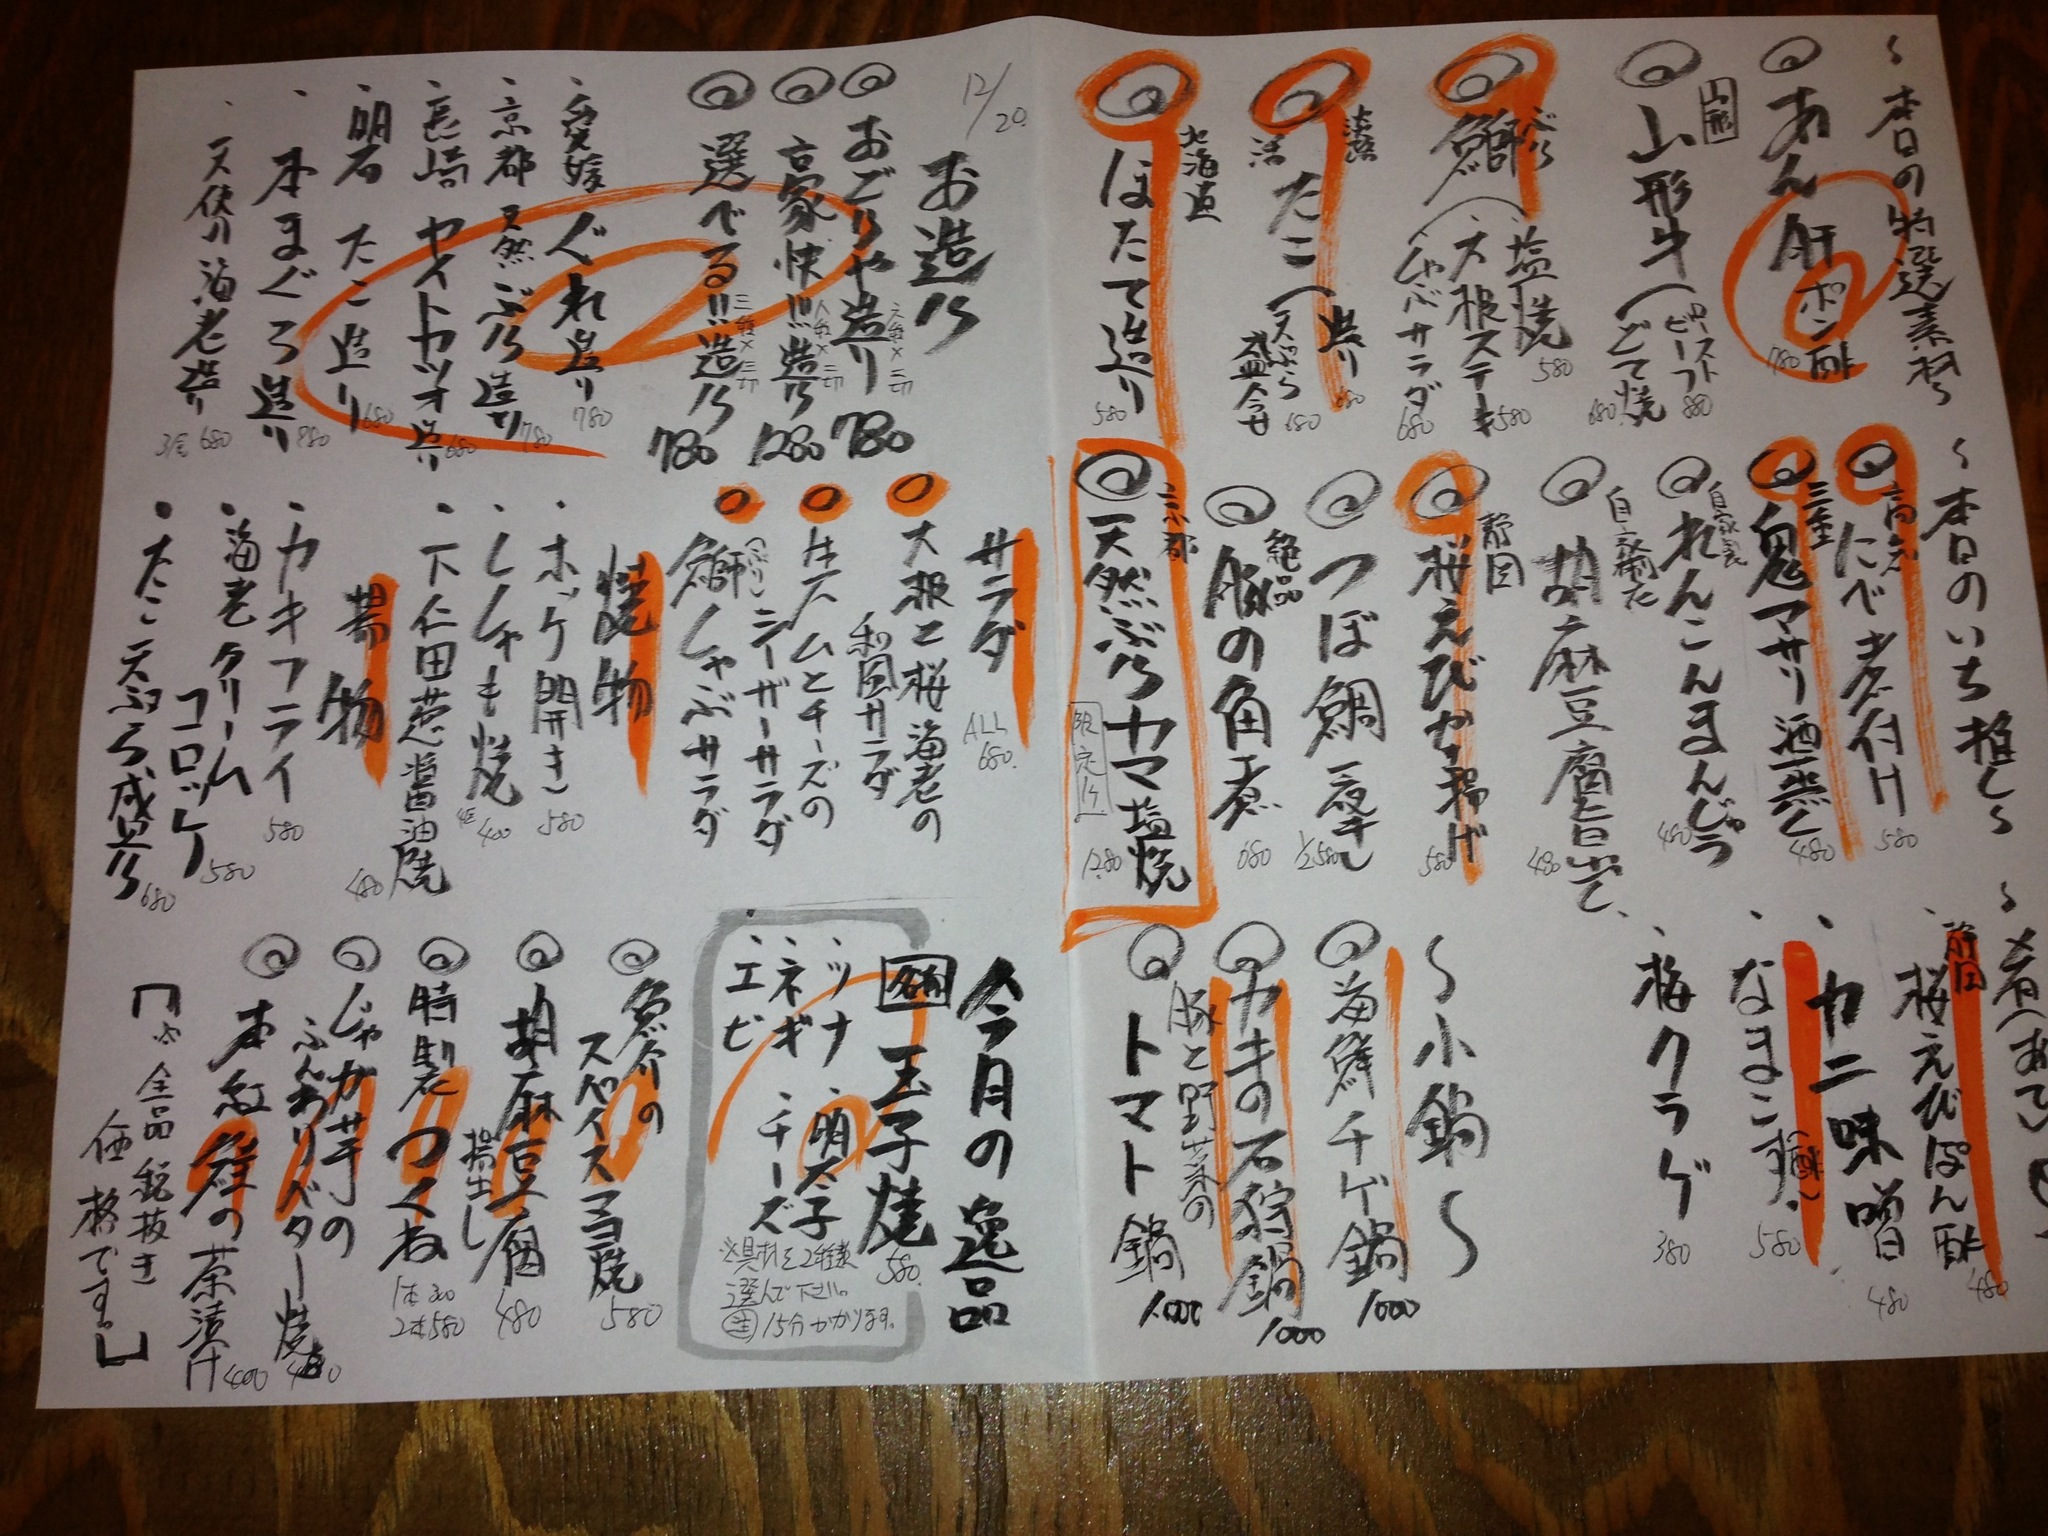 〜本日の特選素材〜
あん肝ポン酢
780
山形
山形牛
ローストビーフ 880
どて焼 680
鰤
塩焼 580
大根ステーキ 580
しゃぶサラダ 680
淡路
活
たこ
造り 680
天ぷら盛合せ 680
北海道
ほたて造り
580
〜本日のいち推し〜
高知
にべ
付け
580
三重
鬼アサリ酒蒸し
480
自家製
れんこんまんじゅう
480
自家製
胡麻豆腐旨出て
480
静岡
桜えびかき揚げ
580
つぼ鯛一夜干し
1/2 580
絶品
豚の角煮
680
京都
天然ぶりカマ塩焼
限定
1280
〜肴(あて)
静岡
桜えびぽん酢
480
カニ味噌
480
なまこす(酢)
580
梅クラゲ
380
〜小鍋〜
海鮮チゲ鍋
1000
カキの石狩鍋
1000
豚と野菜の
トマト鍋
1000
12/20
お造り
おごりや造り
六種×二切
780
豪快!!!造り
八種×三切
1280
選べる!!造り
三種×三切
780
愛媛 ぐれ造り
780
京都 天然ぶり造り
780
長崎 ヤイトカツオ造り
680
明石 たこ造り
680
本まぐろ造り
880
天使の海老造り
3尾 680
サラダ
ALL
680.
大根と桜海老の
和風サラダ
生ハムとチーズの
シーザーサラダ
鰤しゃぶサラダ
焼物
ホッケ開き
580
ししゃも焼
4尾 400
下仁田葱醤油焼
480
揚物
カキフライ
580
海老クリーム
コロッケ
580
たこ天ぷら盛り
680
今月の逸品
名物
玉子焼
580
・ツナ ・明太子
・ネギ ・チーズ
・エビ
※具材を2種類
選んで下さい。
15分かかります。
魚介の
スパイス玉焼
580
胡麻豆腐
揚出し
480
特製つくね
1本 300
2本 580
じゃが芋の
ふんありバター焼
480
本紅鮭の茶漬け
400
「※全品税抜き
価格です。」